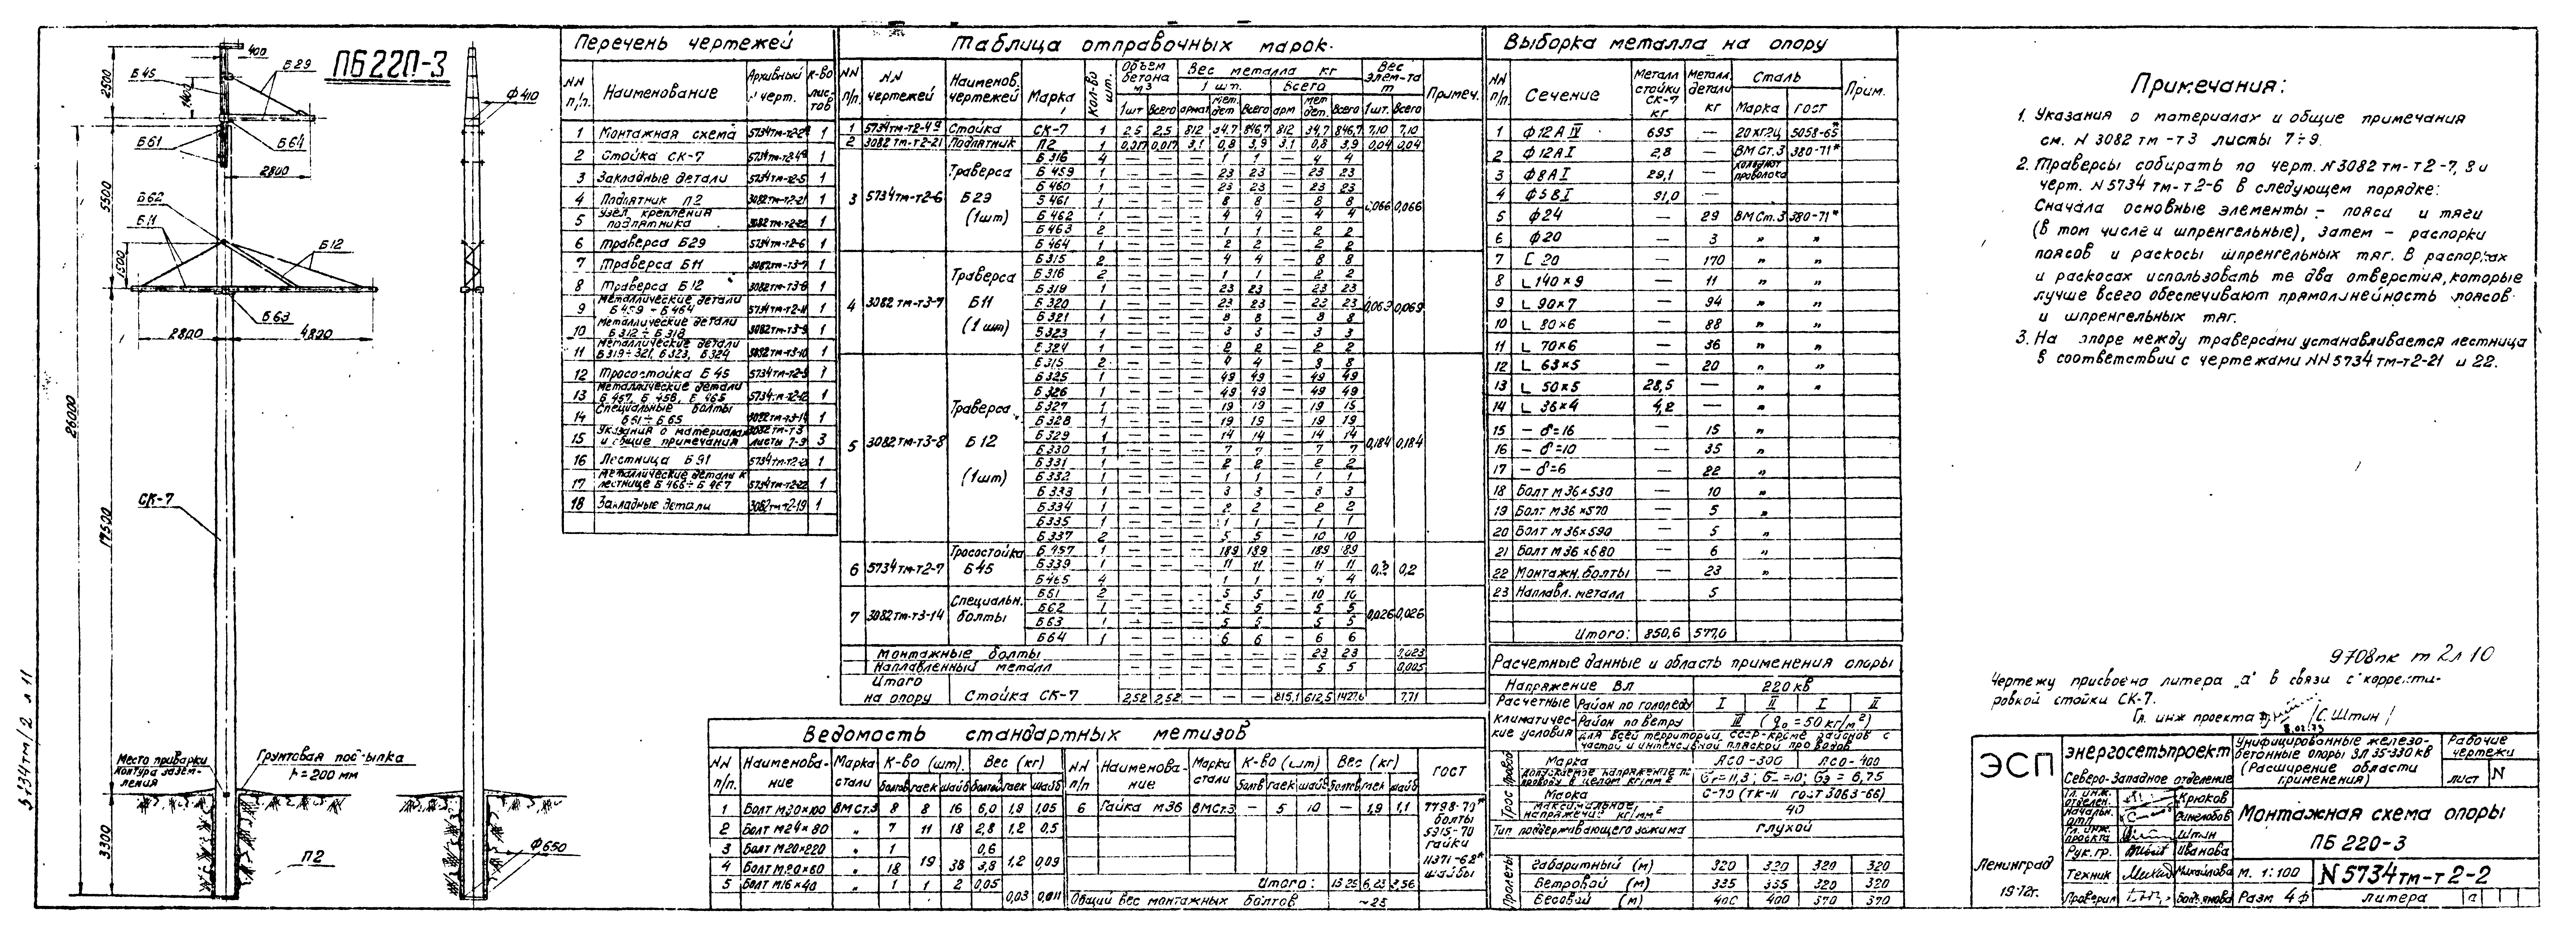 ПБ22П-3
400
Б45
Б29
2500
1400
Ф410
Б61
Б64
2800
5500
Б62
Б11
Б12
1500
Б63
2800
4800
26000
СК-7
17500
Место приварки
контура зазем-
ления
Грунтовая подсыпка
h=200 мм
3300
П2
Ф650
5734тм/2 л 11
Перечень чертежей
NN п/п. Наименование Архивный N черт. К-во листов
1 Монтажная схема 1
2 Стойка СК-7 1
3 Закладные детали 5734тм-т2-5 1
4 Подпятник П2 3082тм-т2-21 1
5 Узел крепления подпятника 3082тм-т2-22 1
6 Траверса Б29 5734тм-т2-6 1
7 Траверса Б11 3082тм-т3-7 1
8 Траверса Б12 3082тм-т3-8 1
9 Металлические детали Б459÷Б464 1
10 Металлические детали Б312÷Б318 3082тм-т3-9 1
11 Металлические детали Б319÷321, Б323, Б324 3082тм-т3-10 1
12 Тросостойка Б45 1
13 Металлические детали Б457, Б458, Б465 1
14 Специальные болты Б61÷Б65 3082тм-т3-14 1
15 Указания о материалах и общие примечания 3082тм-т3 листы 7-9 3
16 Лестница Б91 1
17 Металлические детали к лестнице Б466÷Б467 5734тм-т2-22 1
18 Закладные детали 3082тм-т2-19 1
Таблица отправочных марок.
NN п/п NN чертежей Наименов. чертежей Марка Кол-во шт. Объем бетона м3 Вес металла кг Вес элем-та т Примеч.
1 шт. Всего
1шт Всего армат мет. дет Всего арм мет дет. Всего 1шт. Всего
1 5734тм-т2-4а Стойка СК-7 1 2,5 2,5 812 34,7 846,7 812 34,7 846,7 7,10 7,10
2 3082тм-т2-21 Подпятник П2 1 0,017 0,017 3,1 0,8 3,9 3,1 0,8 3,9 0,04 0,04
3 5734тм-т2-6 Траверса Б29 (1шт) 0,066 0,066
Б316 4 — — — 1 1 — 4 4
Б459 1 — — — 23 23 — 23 23
Б460 1 — — — 23 23 — 23 23
Б461 1 — — — 8 8 — 8 8
Б462 1 — — — 4 4 — 4 4
Б463 2 — — — 1 1 — 2 2
Б464 1 — — — 2 2 — 2 2
4 3082тм-т3-7 Траверса Б11 (1шт) 0,069
Б315 2 — — — 4 4 — 8 8
Б316 2 — — — 1 1 — 2 2
Б319 1 — — — 23 23 — 23 23
Б320 1 — — — 23 23 — 23 23
Б321 1 — — — 8 8 — 8 8
Б323 1 — — — 3 3 — 3 3
Б324 1 — — — 2 2 — 2 2
5 3082тм-т3-8 Траверса Б12 (1шт) 0,184 0,184
Б315 2 — — — 4 4 — 8 8
Б325 1 — — — 49 49 — 49 49
Б326 1 — — — 49 49 — 49 49
Б327 1 — — — 19 19 — 19
Б328 1 — — — 19 19 — 19 19
Б329 1 — — — 14 14 — 14 14
Б330 1 — — — 7 7 — 7 7
Б331 1 — — — 2 2 — 2 2
Б332 1 — — — 1 1 — 1 1
Б333 1 — — — 3 3 — 3 3
Б334 1 — — — 2 2 — 2 2
Б335 1 — — — 1 1 — 1 1
Б337 2 — — — 5 5 — 10 10
6 5734тм-т2-7 Тросостойка Б45 0,2
Б457 1 — — — 189 189 — 189 189
Б339 1 — — — 11 11 — 11 11
Б465 4 — — — 1 1 — 4 4
7 3082тм-т3-14 Специальн. болты 0,026 0,026
Б61 2 — — — 5 5 — 10 10
Б62 1 — — — 5 5 — 5 5
Б63 1 — — — 5 5 — 5 5
Б64 1 — — — 6 6 — 6 6
Монтажные болты — — — — — — 23 23 0,023
Наплавленный металл — — — — — — 5 5 0,005
Итого на опору Стойка СК-7 2,52 2,52 — — — 815,1 612,5 1427,6 7,71
Ведомость стандартных метизов
NN п/п. Наименование Марка стали К-во (шт). Вес (кг) NN п/п. Наименование Марка стали К-во (шт) Вес (кг) ГОСТ
болтов гаек шайб болтов гаек шайб болтов гаек шайб болтов гаек шайб
1 Болт М30×100 ВМСт.3 8 8 16 6,0 1,9 1,05 6 Гайка М36 ВМСт.3 — 5 10 — 1,9 1,1
2 Болт М24×80 „ 7 11 18 2,8 1,2 0,5
3 Болт М20×220 „ 1 0,6
4 Болт М20×60 „ 18 19 38 3,8 1,2 0,09
5 Болт М16×40 „ 1 1 2 0,05 0,03 0,011
7798-70* болты 5915-70 гайки 11371-68* шайбы
Итого: 13.25 6,23
Общий вес монтажных болтов ~25
Выборка металла на опору
NN п/п Сечение Металл стойки СК-7 кг Металл. детали кг Сталь Прим.
Марка ГОСТ
1 Ф12АIV 695 — 20ХГ2Ц 5058-65*
2 Ф12АI 2,8 — ВМСт.3 380-71*
3 Ф8АI 29,1 — холоднот проволока
4 Ф5ВI 91,0 —
5 Ф24 — 29 ВМСт.3 380-71*
6 Ф20 — 3 „ „
7 С 20 — 170 „ „
8 L140×9 — 11 „ „
9 L 90×7 — 94 „ „
10 L 80×6 — 88 „ „
11 L 70×6 — 36 „ „
12 L 63×5 — 20 „ „
13 L 50×5 28,5 — „ „
14 L 36×4 4,2 — „
15 — δ=16 — 15 „
16 — δ=10 — 35 „
17 — δ=6 — 22 „
18 Болт М36×530 — 10 „
19 Болт М36×570 — 5 „
20 Болт М36×590 — 5 „
21 Болт М36×680 — 6 „
22 Монтажн. болты — 23 „
23 Наплавл. металл 5
Итого: 850,6 577,0
Расчетные данные и область применения опоры
Напряжение Вл 220 кв
Расчетные климатические условия
Район по гололеду I II I II
Район по ветру III (q₀=50кг/м²)
Для всей территории СССР кроме районов с
частой и интенсивной пляской проводов
Провод Марка АСО-300 АСО-400
Допускаемое напряжение по проводу в целом кг/мм² σг=11,3; σ-=10; σэ=6,75
Трос Марка С-70 (ТК-11 ГОСТ 3063-66)
Максимальное напряжение кг/мм² 40
Тип поддерживающего зажима глухой
Пролеты
Габаритный (м) 320 320 320 320
Ветровой (м) 335 335 320 320
Весовой (м) 400 400 370 370
Примечания:
1. Указания о материалах и общие примечания
см. N 3082тм-т3 листы 7÷9.
2. Траверсы собирать по черт. N3082тм-т2-7, 8 и
черт. N5734тм-т2-6 в следующем порядке:
Сначала основные элементы - пояса и тяги
(в том числе и шпренгельные), затем - распорки
поясов и раскосы шпренгельных тяг. В распорках
и раскосах использовать те два отверстия, которые
лучше всего обеспечивают прямолинейность поясов
и шпренгельных тяг.
3. На опоре между траверсами устанавливается лестница
в соответствии с чертежами NN5734тм-т2-21 и 22.
9708пк т2л10
Чертежу присвоена литера „а" в связи с корректи-
ровкой стойки СК-7.
Гл. инж проекта /С. Штин/
ЭСП
Энергосетьпроект
Северо-Западное отделение
Унифицированные железо-
бетонные опоры ВЛ 35-330кв
(Расширение области
применения)
Рабочие
чертежи
лист N
Гл. инж. отделен. Крюков
Начальн. отд. Синелобов
Гл. инж. проекта Штин
Рук. гр. Иванова
Техник Михайлова
Проверил
Монтажная схема опоры
ПБ 220-3
Ленинград
1972г.
М. 1:100
N5734тм-т2-2
Разм 4ф
литера а